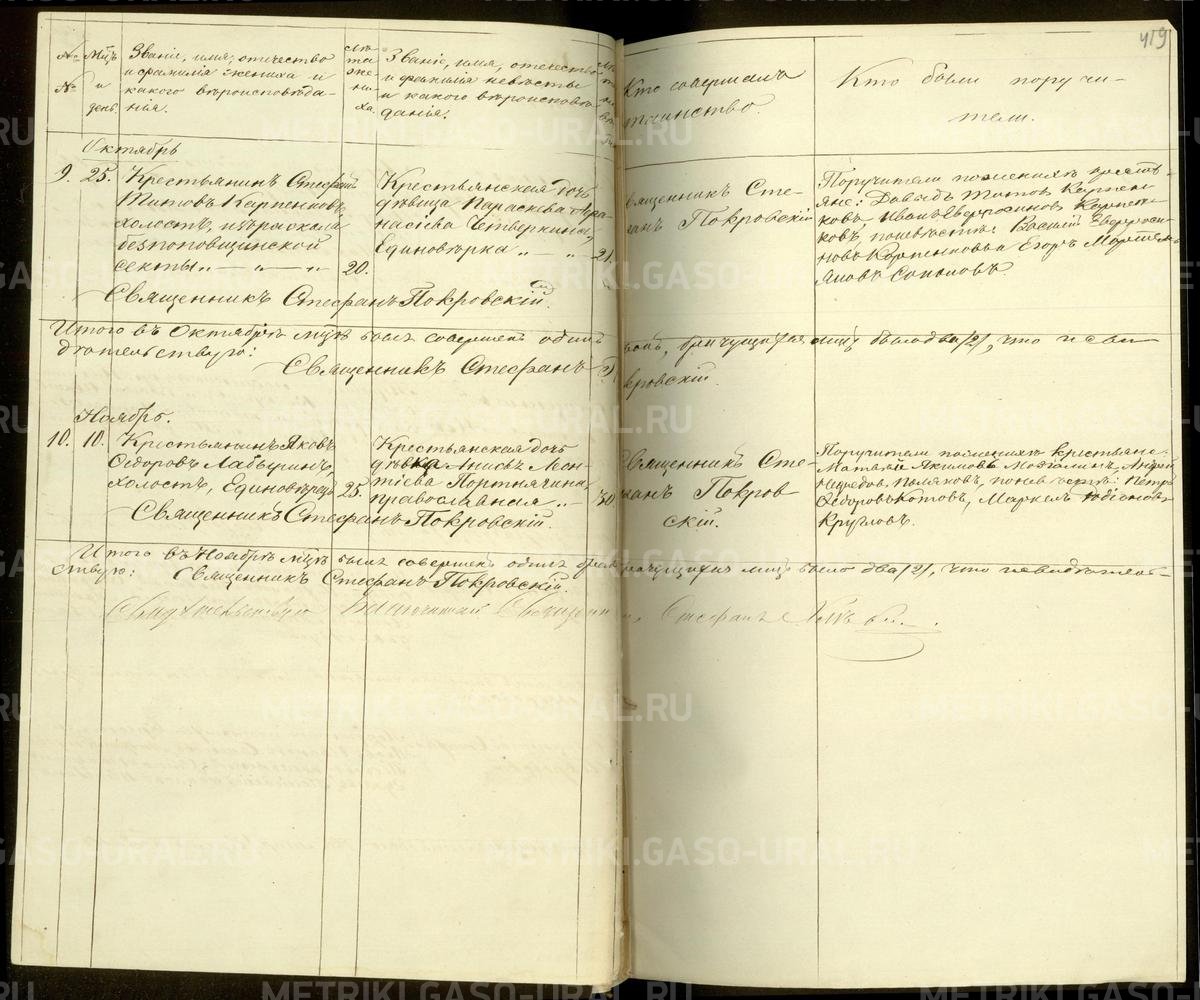 419
№ Мцъ Званіе, имя, отечество
и фамилія жениха и
какого вѣроисповѣда-
нія.
и
день.
лѣ-
та
же-
ни-
ха.
Званіе, имя, отечество
и фамилія невѣсты
и какого вѣроисповѣ-
данія.
Кто совершалъ
таинство.
Кто были поручи-
тели.
Октябрь
9. 25. Крестьянинъ Стефанъ
Титовъ Карпенковъ,
холостъ, изъ раскола
безпоповщинской
секты „ — „ — „ 20.
Крестьянская дочь
дѣвица Параскева Афа-
насіева Четверкина,
Единовѣрка „ — „ — 21.
Священникъ Сте-
фанъ Покровскій
Поручители по женихѣ кресть-
яне: Давыдъ Титовъ Карпен-
ковъ, Иванъ Евфросиновъ Карпен-
ковъ, по невѣстѣ: Василій Евфроси-
новъ Карпенковъ и Егоръ Мартемь-
яновъ
Священникъ Стефанъ Покровскій.
Итого въ Октябрѣ мцѣ былъ совершенъ одинъ бракъ, брачущихся лицъ было два /2/, что и сви-
дѣтельствую:
Священникъ Стефанъ Покровскій.
Ноябрь.
10. 10. Крестьянинъ Яковъ
Ѳедоровъ Лабыринъ,
холостъ, Единовѣрецъ 25.
Крестьянская дочь
дѣвка Анисья Леон-
тіева Портнягина,
православная „ 30.
Священникъ Сте-
фанъ Покров
скій.
Поручители по женихѣ крестьяне:
Матвѣй Якимовъ Андрей
Поляковъ, по невѣстѣ: Петръ
Ѳедоровъ Котовъ, Маркелъ Родіоновъ
Кругловъ.
Священникъ Стефанъ Покровскій.
Итого въ Ноябрѣ мцѣ былъ совершенъ одинъ бракъ, брачущихся лицъ было два /2/, что и свидѣтель-
ствую: Священникъ Стефанъ Покровскій.
Свидѣтельствую Священникъ Стефанъ
METRIKI.GASO-URAL.RU